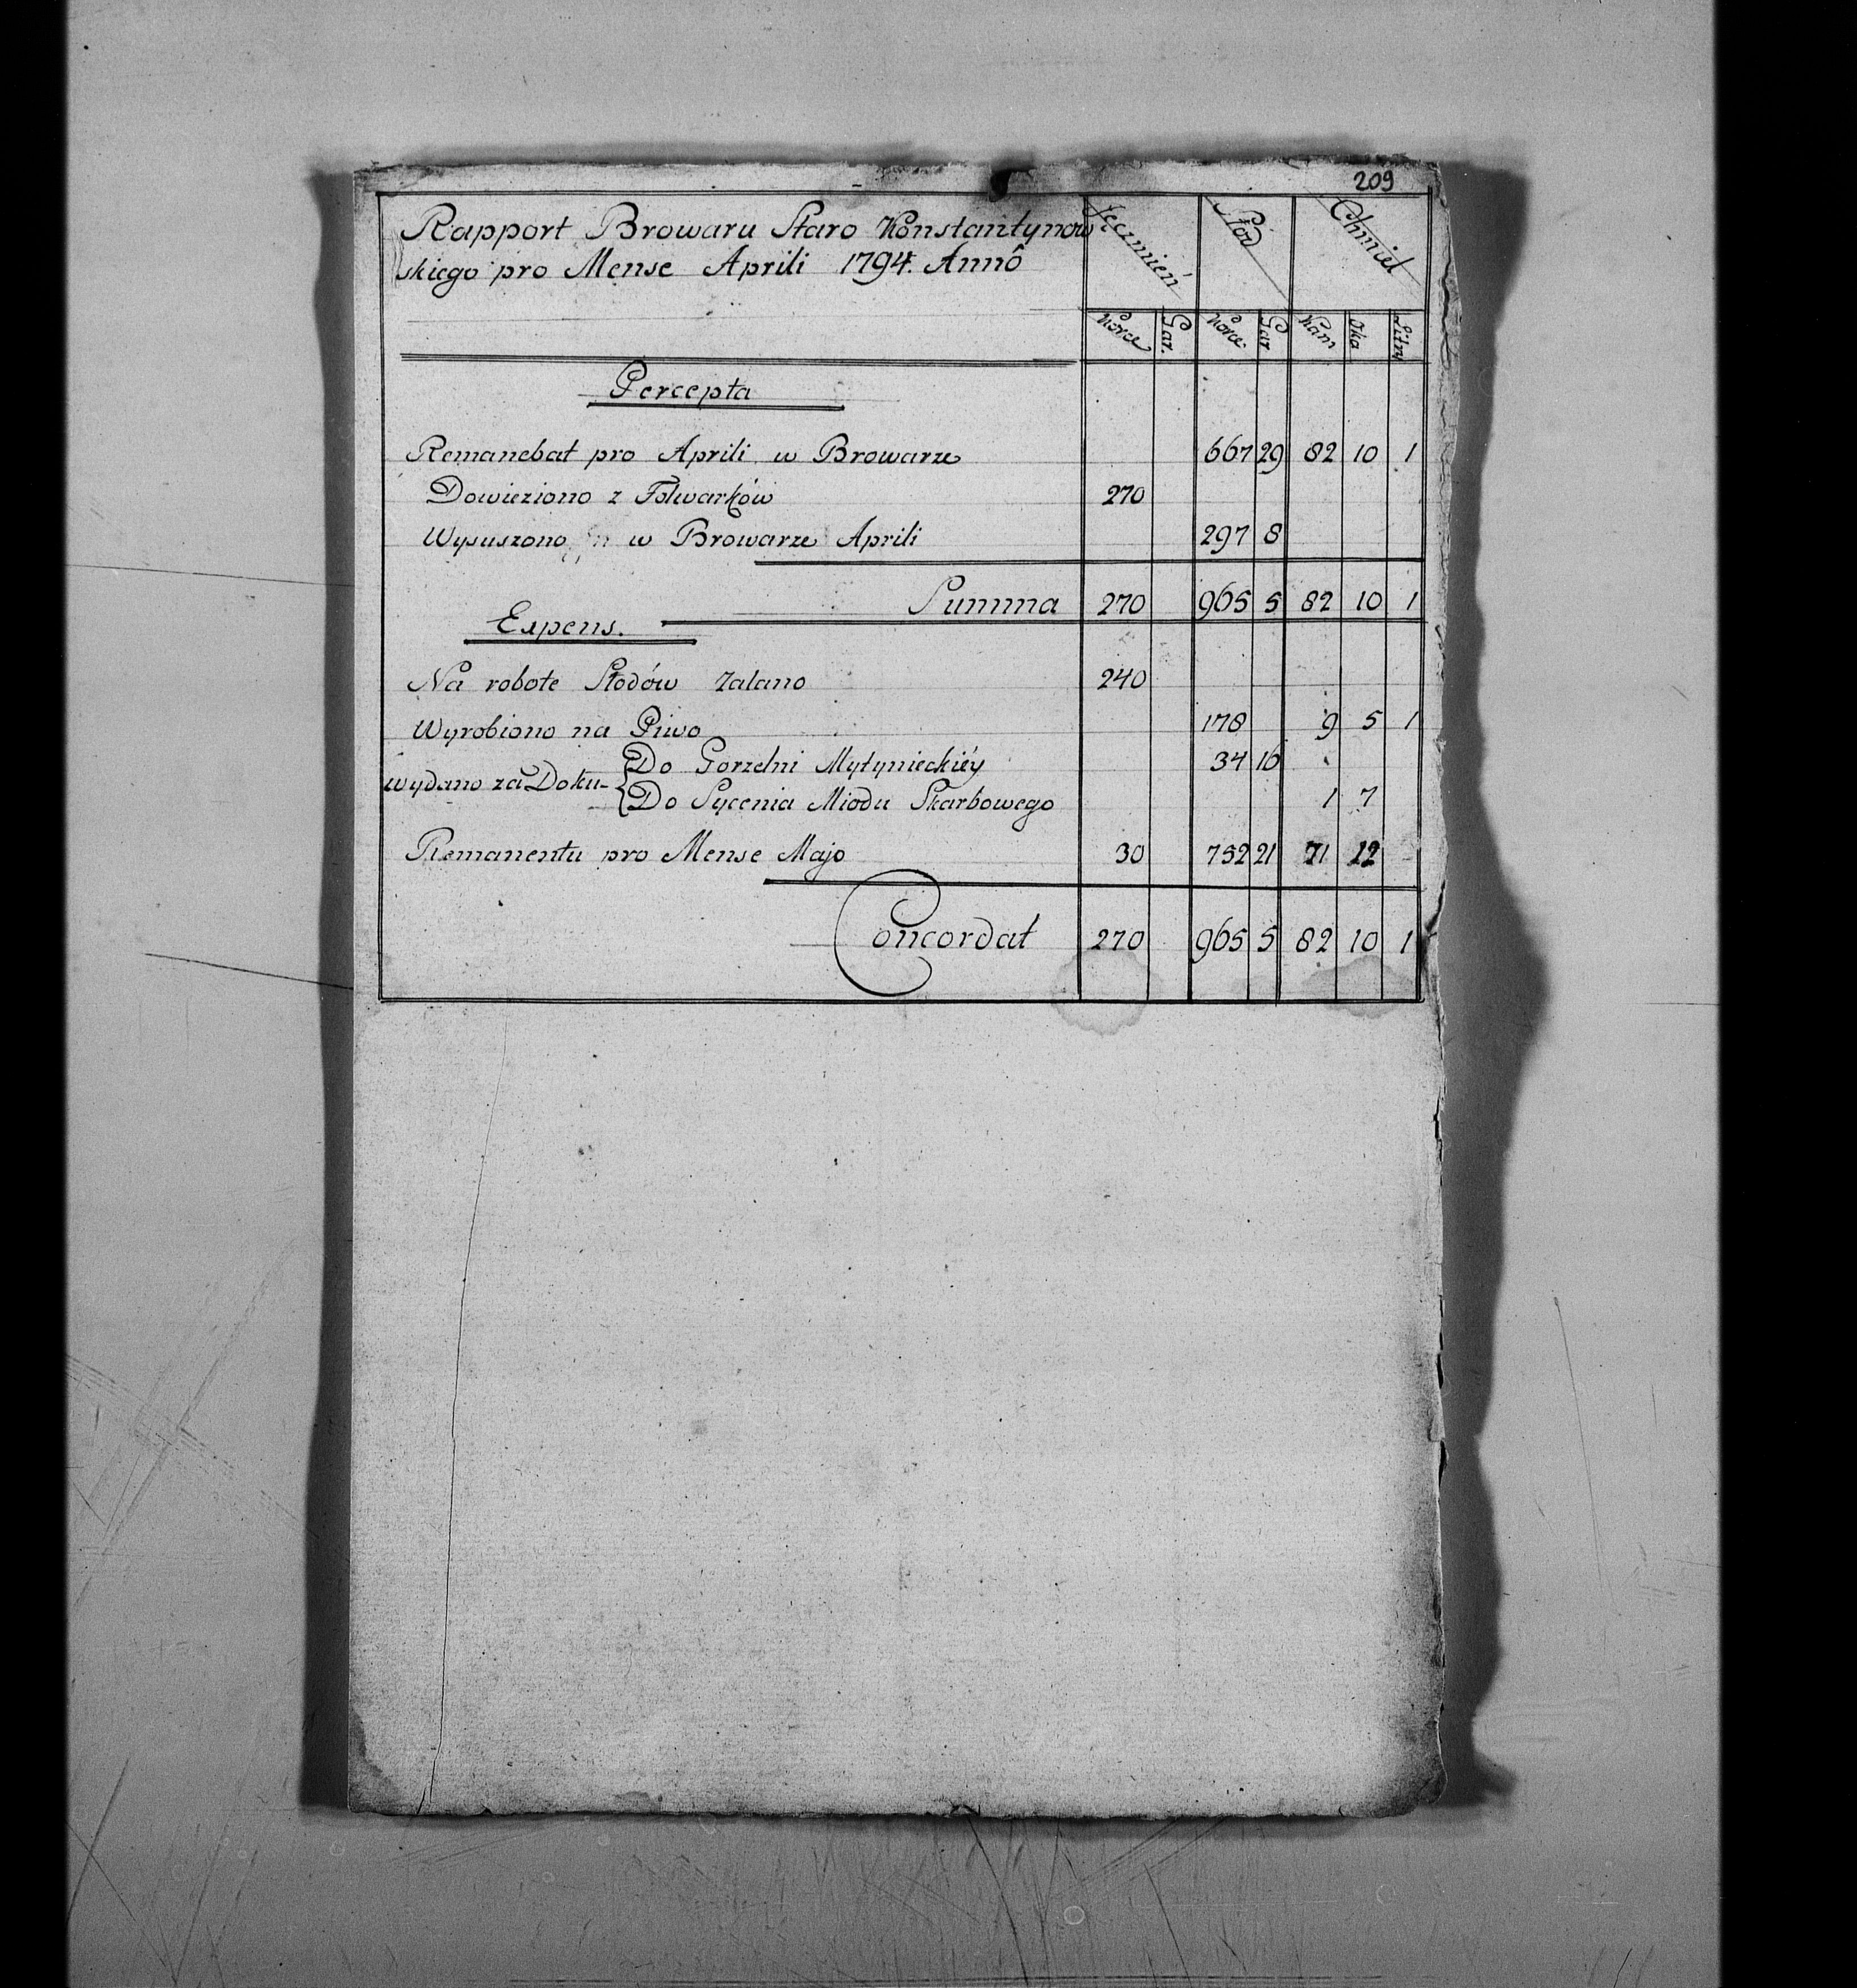 209
Rapport Browaru Staro Konstantynow
skiego pro Mense Aprili 1794. Annô
Jęczmień Słod Chmiel
Korce Gar. Korce Gar Kam Oka Litry
Percepta
Remanebat pro Aprili w Browarze 667 29 82 10 1
Dowieziono z Folwarków 270
Wysuszono w Browarze Aprili 297 8
Summa 270 965 5 82 10 1
Expens.
Na robote Słodów Zalano 240
Wyrobiono na Piwo 178 9 5 1
wydano za Doku- Do Gorzelni Mytynieckiéy 34 16
Do Sycenia Miodu Skarbowego 1 7
Remanentu pro Mense Majo 30 752 21 71 12
Concordat 270 965 5 82 10 1